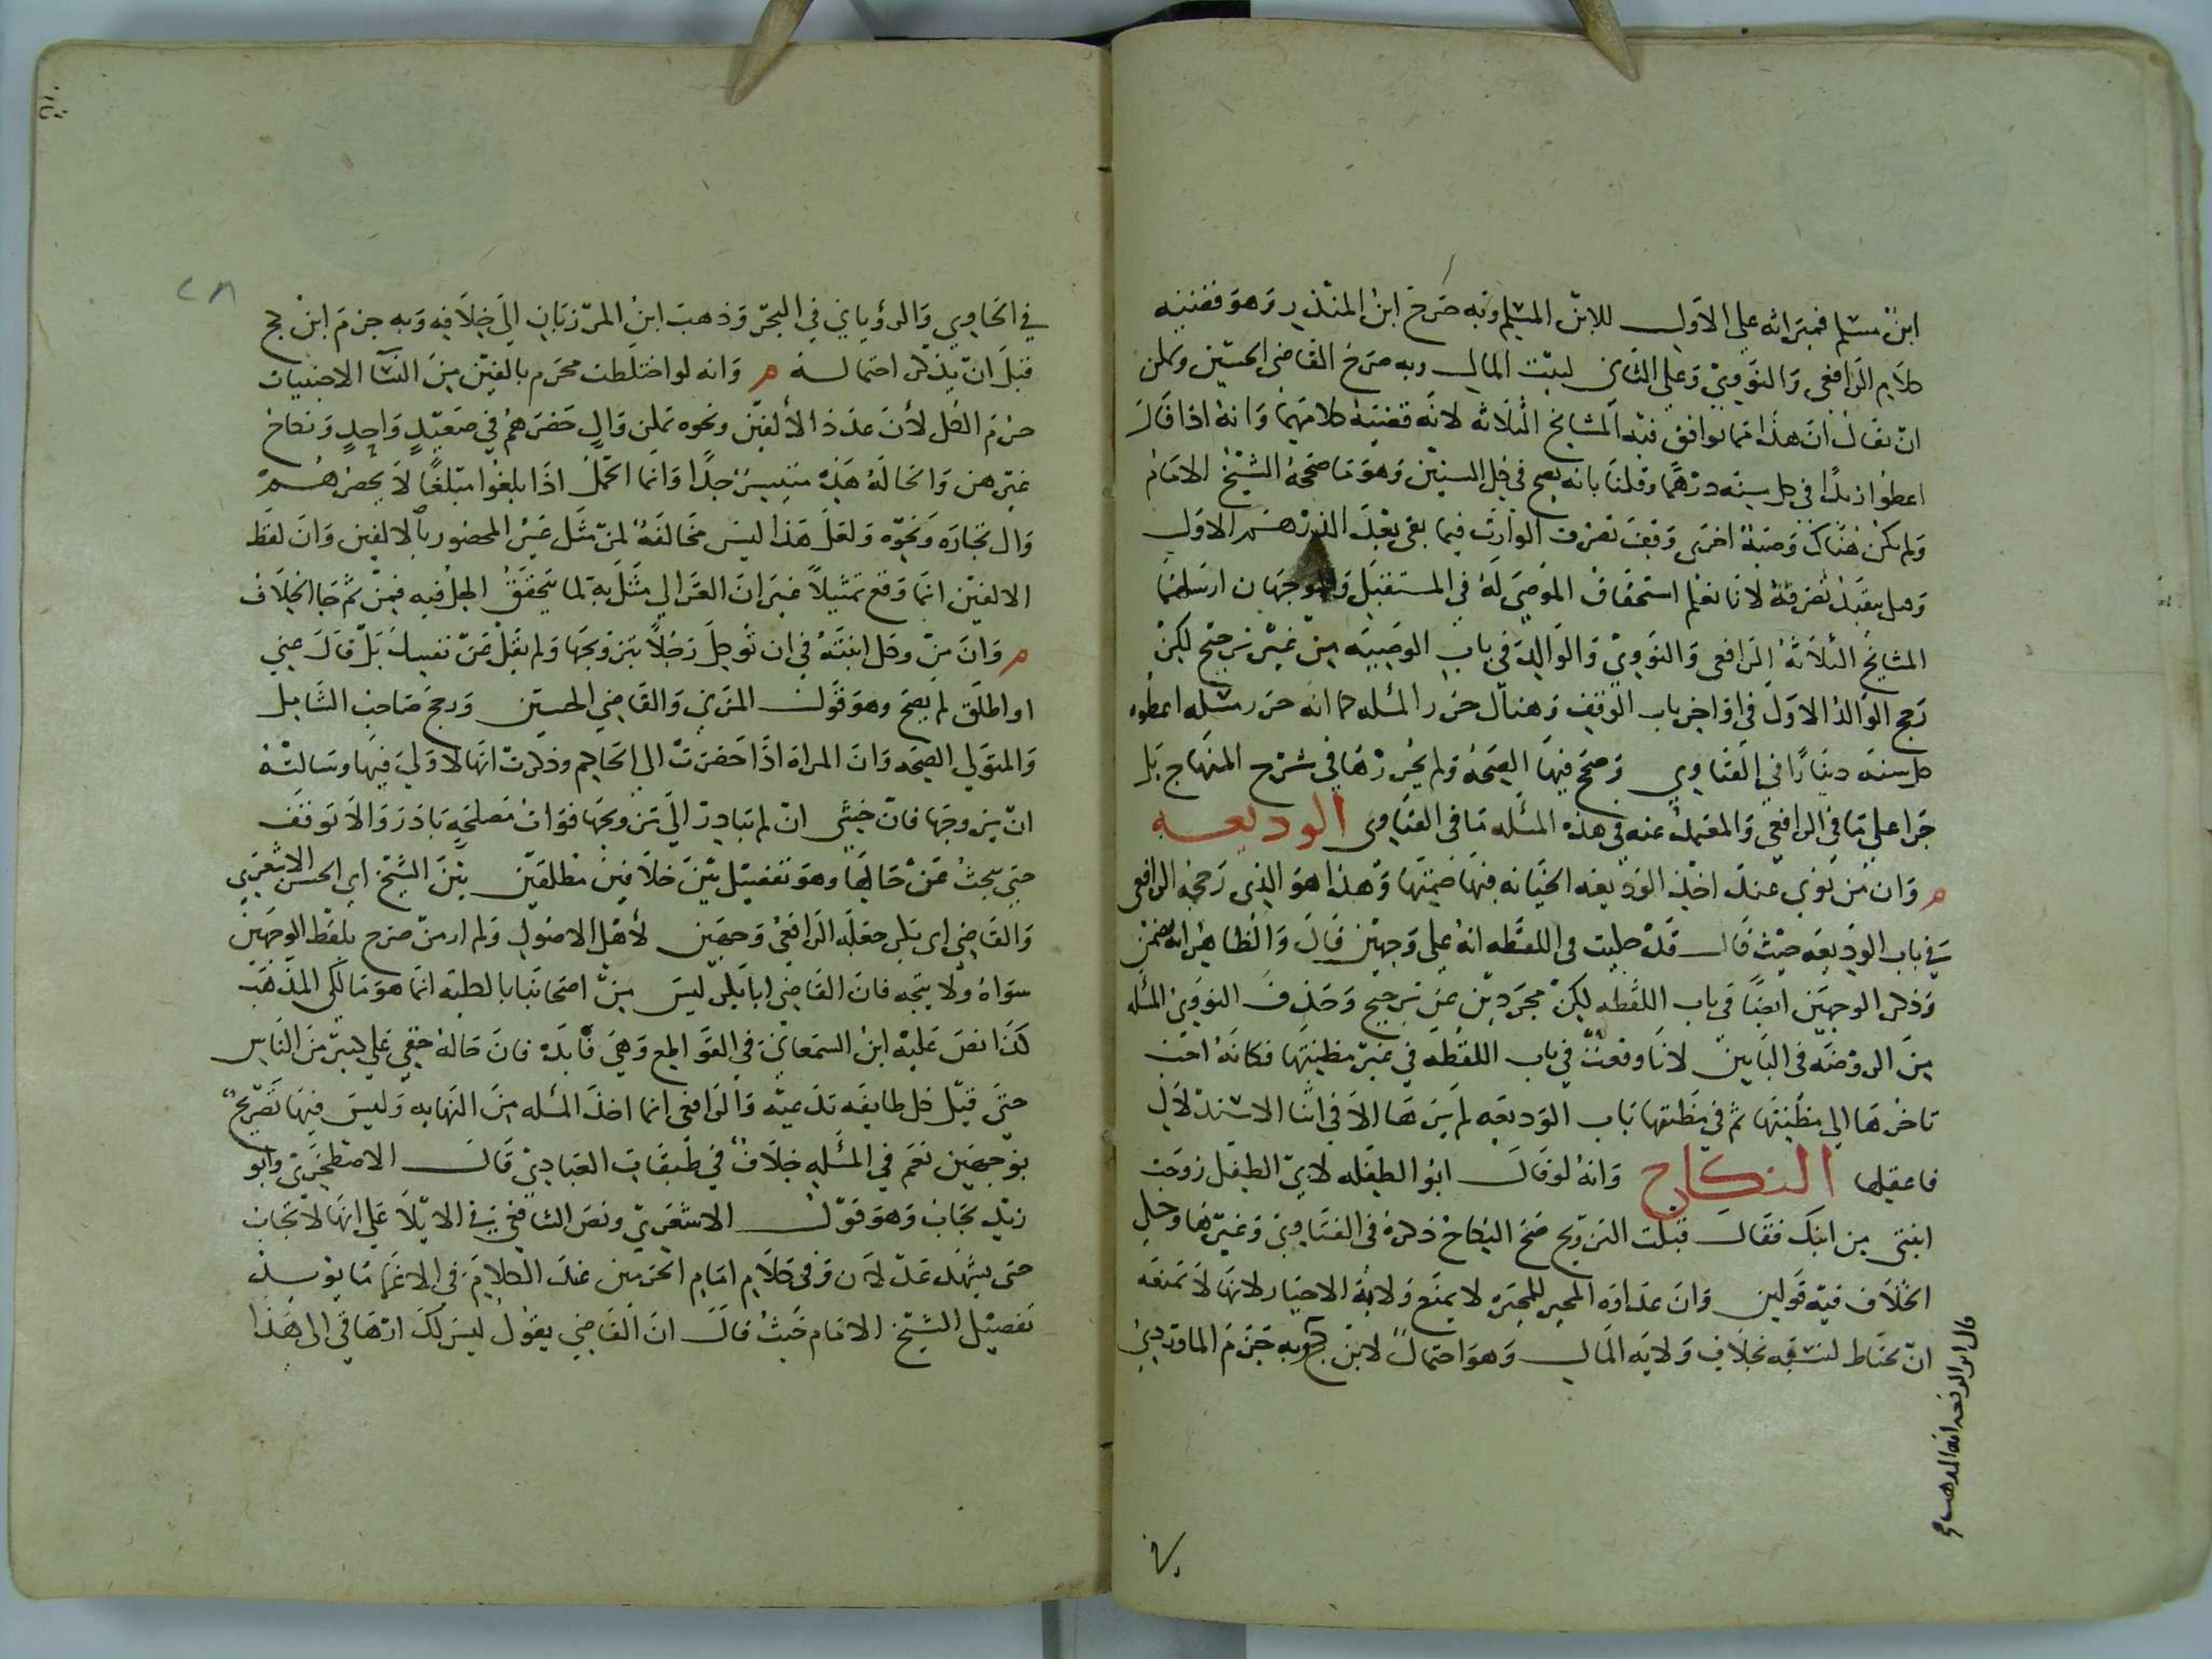 ابن مسلم فميراثه على الاول للابن المسلم وبه صرح ابن المنذر وهو قضية
كلام الرافعي والنووي وعلى الثاني لبيت المال وبه صرح القاضي الحسين ويمكن
ان يقال ان هذا مما توافق فيه المشايخ الثلاثة لانه قضية كلامهما وانه اذا قال
اعطوا زيدا في كل سنة درهما وقلنا بانه يصح في كل السنين وهو ما صححه الشيخ الامام
ولم يكن هناك وصية اخرى وقف تصرف الوارث فيما بقي بعد الدرهم الاول
وهل ينفذ تصرفه لانا نعلم استحقاق الموصى له في المستقبل وجهان ارسلهما
المشايخ الثلاثة الرافعي والنووي والوالد في باب الوصية من غير ترجيح لكن
رجح الوالد الاول في اواخر باب الوقف وهناك حرر المسئله كما انه حرر مسئله اعطوه
كل سنة دينارا في الفتاوي وصحح فيها الصحة ولم يحررها في شرح المنهاج بل
جرا على ما في الرافعي والمعتمد عنه في هذه المسئله ما في الفتاوى الوديعه
م وان من نوى عند اخذ الوديعه الخيانه فيها ضمنها وهذا هو الذي رجحه الرافعى
في باب الوديعه حيث قال قد حكيت في اللقطه انه على وجهين قال والظاهر انه يضمن
وذكر الوجهين ايضا في باب اللقطه لكن مجردين عن ترجيح وحذف النووي المسئله
من الروضه في البابين لانها وقعت في باب اللقطه في غير مظنتها فكانه احب
تاخرها الى مظنتها ثم في مظنتها باب الوديعه لم يرها الا في اثنا الاستدلال
فاغفلها النكاح وانه لو قال ابو الطفله لابي الطفل زوجت
ابنتي من ابنك فقال قبلت التزويج صح النكاح ذكره في الفتاوي وغيرها وحكى
الخلاف فيه قولين وان عداوه المجبر للمجبره لا يمنع ولاية الاجبار لانها لا تمنعه
ان يحتاط لنفسه بخلاف ولايه المال وهو احتمال لابن كج وبه جزم الماوردي
في الحاوي والروياني في البحر وذهب ابن المرزبان الى خلافه وبه جزم ابن كج
قبل ان يذكر احتماله م وانه لو اختلطت محرم بالفين من النسا الاجنبيات
حرم الكل لأن عدد الألفين ونحوه يمكن وال حضرهم في صعيد واحد ونكاح
غيرهن والحالة هذه متيسر جدا وانما الحل اذا بلغوا مبلغا لا يحصرهم
وال بحاره ونحوه ولعل هذا ليس مخالفة لمن مثل غير المحصور بالالفين وان لفظ
الالفين انما وقع تمثيلا غير ان الغزالي مثل به لما يتحقق الحل فيه فمن ثم جا الخلاف
م وان من وكل ابنته في ان توكل رجلا بتزويجها ولم يقل عن نفسك بل قال عني
او اطلق لم يصح وهو قول المزني والقاضي الحسين ورجح صاحب الشامل
والمتولي الصحه وان المراة اذا احضرت الى الحاكم وذكرت انها لا ولي فيها وسالته
ان يزوجها فان خشي ان لم تبادر الى تزويجها فوات مصلحة بادر والا توقف
حتى يبحث عن حالها وهو تفصيل بين خلافين مطلقين بين الشيخ ابي الحسن الاشعري
والقاضي ابي بكر جعله الرافعي وجهين لأهل الاصول ولم ار من صرح بلفظ الوجهين
سواه ولا يتجه فان القاضي ابا بكر ليس من اصحابنا بالكليه انما هو مالكي المذهب
كذا نص عليه ابن السمعاني في القواطع وهي فائدة فان حاله خفي على كثير من الناس
حتى قيل كل طايفه تدعيه والرافعي انما اخذ المسئله من النهايه وليس فيها تصريح
بوجهين نعم في المسئله خلاف في طبقات العبادي قال الاصطخري وابو
زيد تجاب وهو قول الاشعري ونص الشافعي في الايلا على انها لا تجاب
حتى يشهد عدلان وفي كلام امام الحرمين عند الكلام في الاغما ما يويد
تفصيل الشيخ الامام حيث قال ان القاضي يقول ليس لك ارهاقي الى هذا
قال ابن الرفعه انه المذهب